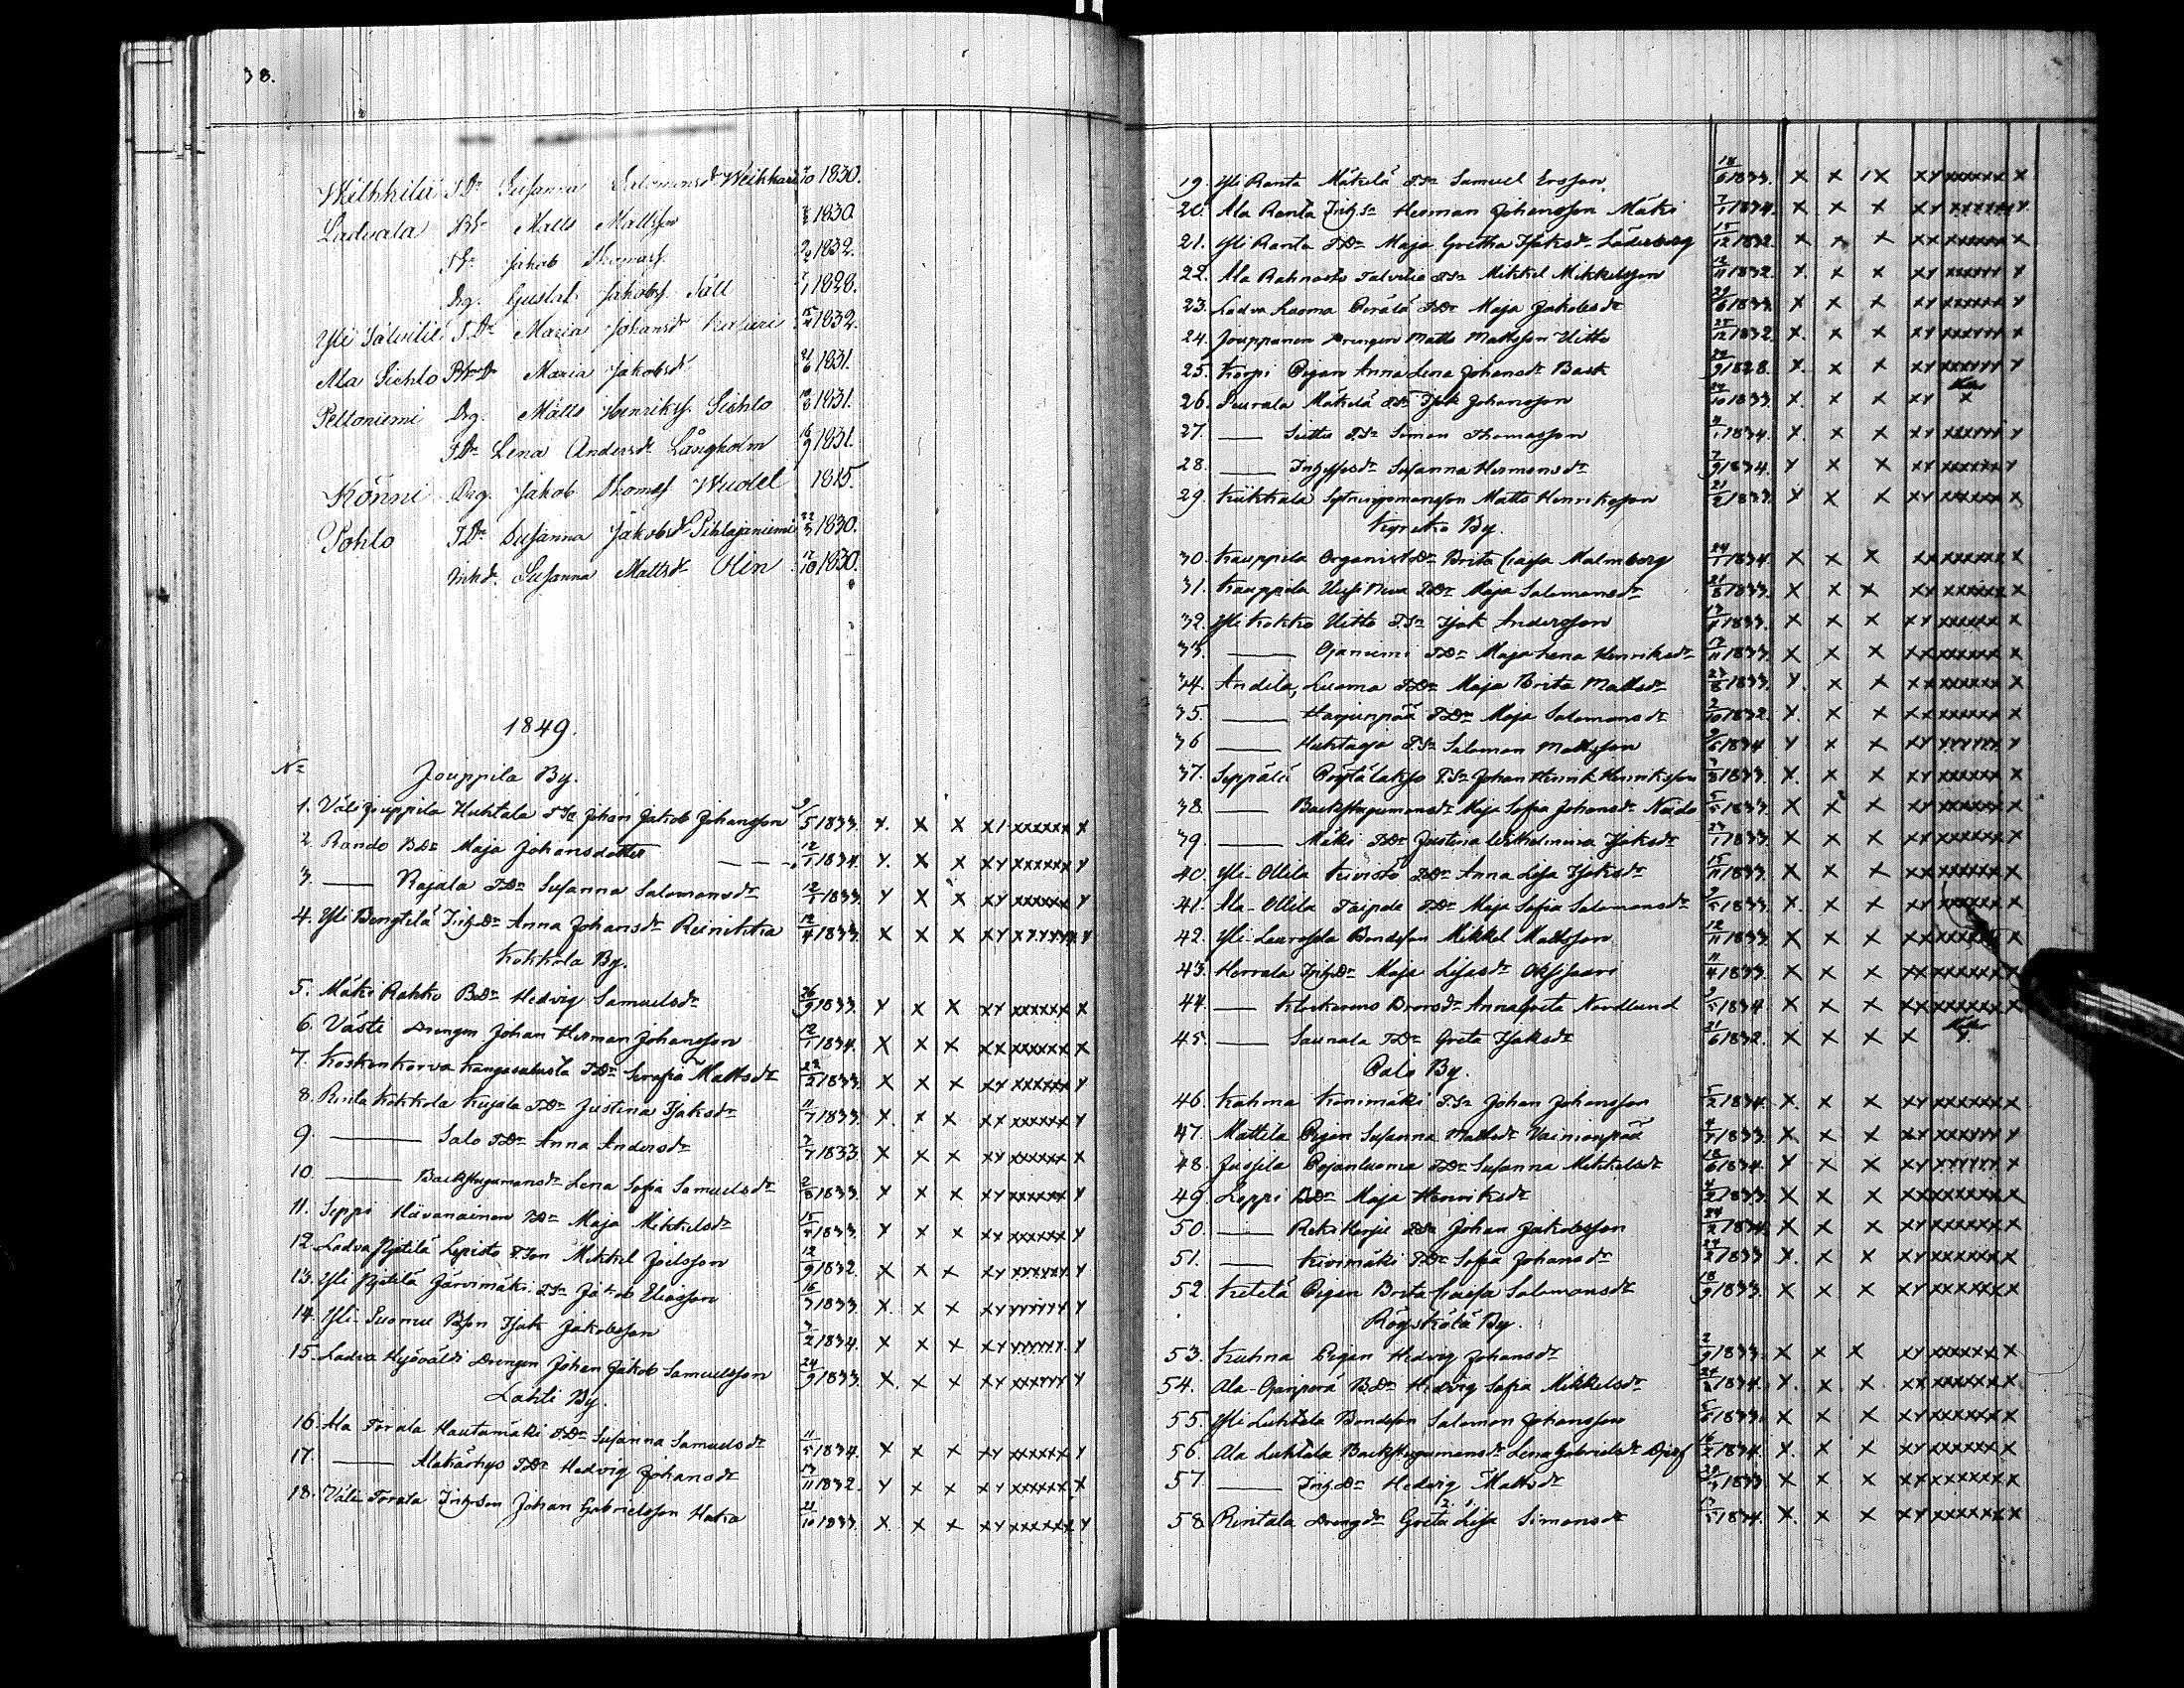 38.
Susanna Salomonsdr 10 1830.
Ladvala Bs. Matts Mattsson 1830
Ts. Jakob Thomass. 1832.
Drg. Gustaf Jakobs. Säll 1828.
Yli D:r Maria Johansdr 15 1832.
Ala Sichlo D:r Maria Jakobsdr 21/6 1831.
Peltoniemi Drg. Matts Henriks. Sichlo 1831.
T.Dr Lena Andersdr Långholm 16/9 1831.
Könni Drg. Jakob Thomass. Wudel 1815.
Pohto T.Dr. Susanna Jakobsdr Pihlajaniemi 22/3 1830.
Inhdr. Susanna Mattsdr Olin 17/10 1830.
1849.
No
Jouppila By.
1. Väli Jouppila Huhtala T.Sn Johan Jakob Johansson 5 1833. X. X X X I XXXXXX X
2. Rando B.Dr Maja Johansdotter 12/1 1834. Y. X X XY XXXXXX Y
3. —— Rajala T.Dr Susanna Salomonsdr 12 1833 Y X X XY XXXXXX Y
4. Yli Bengtilä Inh.Dr Anna Johansdr Reinikka 12/4 1833. X X X XY
Kokkola By.
5. Mäki Rahko B.Dr Hedvig Samuelsdr 26/9 1833. Y X X XY XXXXXX X
6. Västi Drengen Johan Herman Johansson 12/1 1834. X X X XX XXXXXX X
7. Koskenkorva Kangasaluska T.Dr Serafia Mattsdr 22/2 1833. X X X XY XXXXXX Y
8. Rinta Kokkola Kujala T.Dr Justina Isaksdr 11/7 1833. X X X XY XXXXXX Y
9. —— Salo T.Dr Anna Andersdr 7 1833 X X X XY XXXXXX X
10. —— Backstugumansdr Lena Sofia Samuelsdr 2/8 1833. Y X X XY XXXXXX Y
11. Seppi Hävanainen T.Dr Maja Mikkelsdr 15 1833 Y X X XY XXXXXX Y
12. Ladva Pjetilä Lepisto T.Son Mikkel Joelsson 12/9 1832. X X X XY XXXXXX Y
13. Yli Pjetilä Järvimäki T.Sn Jakob Eliasson 16/3 1833. X. X X XY YYYYYY Y
14. Yli-Suomu B.son Isak Jakobsson 3/2 1834. X X X XY YYYYYY Y
15. Ladva Hyöväldi Drengen Johan Jakob Samuelsson 24/9 1833. X. X X XY XXXYYY Y
Lahti By.
16. Ala Torala Hautamäki T.Dr Susanna Samuelsdr 11/5 1834. X X X XY XXXXXX Y
17. —— Alakärhys T.Dr Hedvig Johansdr 13/11 1832. Y X X XY XXXXXX X
18. Väli Torala Inh.Son Johan Gabrielsson Haka 21/10 1833. X. X X XY XXXXXX Y
19. Yli Ranta Mäkelä T.Sn Samuel Ersson 18/6 1833. X X IX XY XXXXXX X
20. Ala Ranta Inh.Sn Herman Johansson Mäki 7/1 1834. X X X XY XXXXXX Y
21. Yli Ranta T.Dr Maja Gretha Isaksdr Söderberg 15/12 1832 X X X XX XXXXXX X
22. Ala Rahnasto Talvitie T.Sn Mikkel Mikkelsson 12/11 1832. Y. X X XY XXXXYY Y
23. Ladva Luoma Perälä T.Dr Maja Jakobsdr 29/6 1833. X X X XY XXXXXX Y
24. Jouppanen Drengen Matts Mattsson Uitto 25/12 1832. X. X X XY XXXXXX
25. Korpi Pigan Anna Lena Johansdr Back 22/9 1828. Y. X X XY XXXXYY Y
26. Peurala Mäkelä T.Sn Isak Johansson 24/10 1833. X. X X XY X
27. —— T.Sn Simon Thomasson 4/1 1834. Y. X X XY XXXXXX Y
28. —— Susanna Hermansdr 7/9 1834. Y X X XY XXXXXX Y
29. Kükkala Sytningsmansson Matts Henriksson 21/2 1833. Y X X XY XXXXXX X
By.
30. Kauppila OrganistDr Brita Cajsa Malmberg 24/1 1834. X X X XX XXXXXX X
31. Kauppila Uusi Niva T.Dr Maja Salomonsdr 21/8 1833. X X X XY XXXXXX X
32. Yli Kokko Uitto T.Sn Isak Andersson 17 1833. X X X XY XXXXXX X
33. —— Ojaniemi T.Dr Maja Lena Henriksdr 13/11 1833. X X X XX XXXXXX X
34. Andila, Luoma T.Dr Maja Brita Mattsdr 23/8 1833. Y. X X XX XXXXXX X
35. —— Harjunpää T.Dr Maja Salomonsdr 2/10 1832. Y. X X XX XXXXXX X
36 —— Huhtaoja T.Sn Salomon Mattsson 9/6 1834 Y X X XY YYYYYY Y
37. Seppälä T.Sn Johan Henrik Henriksson 3/8 1833. X. X X XY XXXXXX X
38. —— Backstugumansdr Maja Sofia Johansdr 5/5 1833. X X X XX XXXXXX X
39. —— Mäki T.Dr Justina Wilhelmina Isaksdr 27/7 1833. X X X XX XXXXXX X
40. Yli-Ollila Kivistö T.Dr Anna Lisa Isaksdr 15/11 1833. X X X XY XXXXXX X
41. Ala-Ollila Taipale T.Dr Maja Sofia Salomonsdr 9/5 1833. X. X X XY XXXXXX X
42. Yli Laurosela Bondeson Mikkel Mattsson 12/11 1833. X X X XX X
43. Herrala Inh.Dr Maja Lisasdr Oxsaari 11/4 1833. X X X XX XXXXXX
44. —— Klockarens Brorsdr Anna Greta Nordlund 9/5 1834. X X X XX XXXXXX X
45. —— Saunala T.Dr Greta Isaksdr 21/6 1832. X X X X
Palo By.
46. Kahma Konimäki T.Sn Johan Johansson 5/2 1834. X. X X XY XXXXXX X
47. Mattila Pigan Susanna Mattsdr Vainionpää 4/7 1833. X. X X XY XXXXYY Y
48. Jussila Pojanluoma T.Dr Susanna Mikkelsdr 18/6 1834. Y X X XY YYYYYY X
49. Leppi B.Dr Maja Henriksdr 4/2 1833. X X X XX XXXXXX X
50. —— T.Sn Johan Jakobsson 24/2 1834. X X X XY XXXXXX X
51. —— Kivimäki T.Dr Sofia Johansdr 27/2 1833 X. X X XY XXXXXX X
52. Ketelä Pigan Brita Cajsa Salomonsdr 18/9 1833. X X X XY XXXXXX X
Röyskölä By.
53. Kuhna Pigan Hedvig Johansdr 2/9 1833. X X X XY XXXXXX X
54. Ala-Ojanperä B.Dr Hedvig Sofia Mikkelsdr 24 1834. Y. X. X XY XXXXXX X
55. Yli Luhtala Bondeson Salomon Johansson 5/6 1833. X X X XY XXXXXX X
56. Ala Luhtala Backstugumansdr Lena Gabrielsdr 16/2 1834. X. X X XY XXXXXX X
57. —— Inh.Dr Hedvig Mattsdr 1833 X X X XY XXXXXX X
58. Rintala Drengdr Greta Lisa Simonsdr 13/5 1834. X. X X XY XXXXXX X